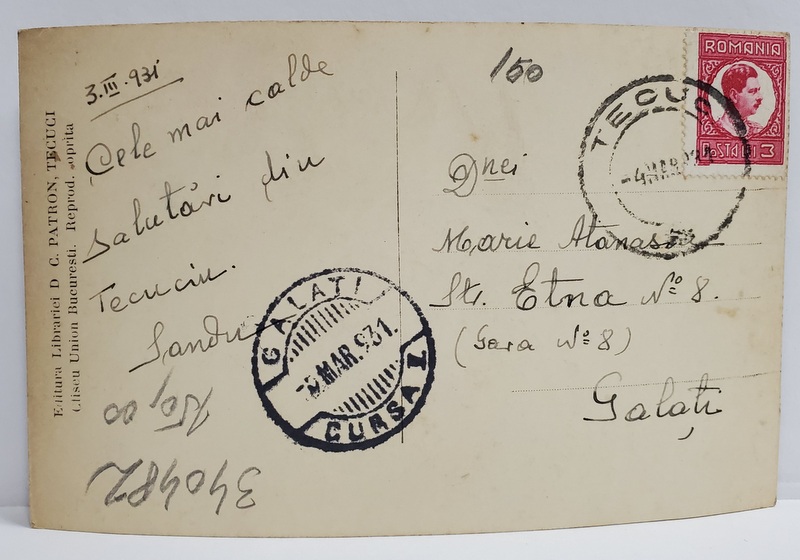 Editura Librariei D C. PATRON, TECUCI
Cliseu Union Bucuresti. Reprod. oprita
3.III.931
Cele mai calde
salutări din
Tecuciu.
Sandu
150,00
340482
150
ROMANIA
POSTA 3
TECUCI
-4 MAR 931
Dnei
Marie Atanasiu
Str. Etna No 8.
(Gara No 8)
Galați
GALATI
MAR.931.
CURSA I